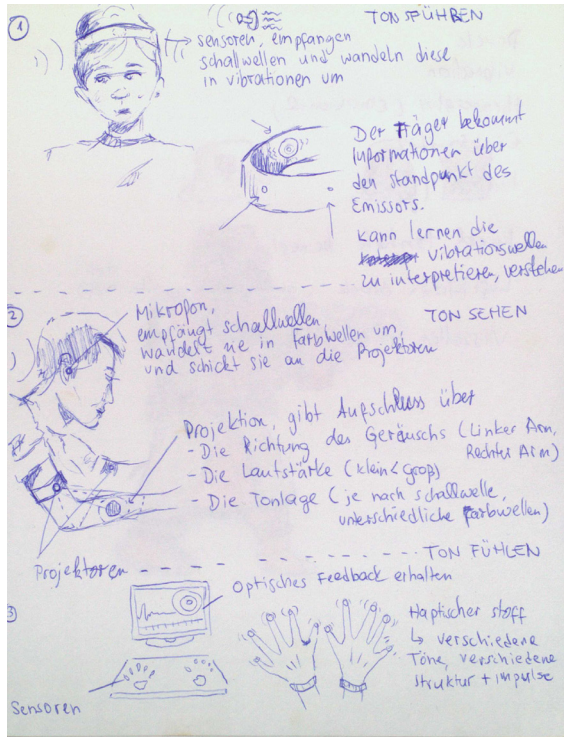 1
TON SFÜHREN
sensoren, empfangen
schallwellen und wandeln diese
in vibrationen um
Der Träger bekommt
Informationen über
den Standpunkt des
Emissors.
kann lernen die
vibrationswellen
zu interpretieren, verstehen
2
TON SEHEN
Mikrofon,
empfängt schallwellen
wandelt sie in Farbwellen um,
und schickt sie an die Projektoren
Projektion, gibt Aufschluss über
- Die Richtung des Geräuschs (Linker Arm,
Rechter Arm)
- Die Lautstärke (klein < groß)
- Die Tonlage (je nach schallwelle,
unterschiedliche Farbwellen)
Projektoren
TON FÜHLEN
3
Optisches Feedback erhalten
Haptischer stoff
↳ verschiedene
Töne, verschiedene
struktur + impulse
Sensoren